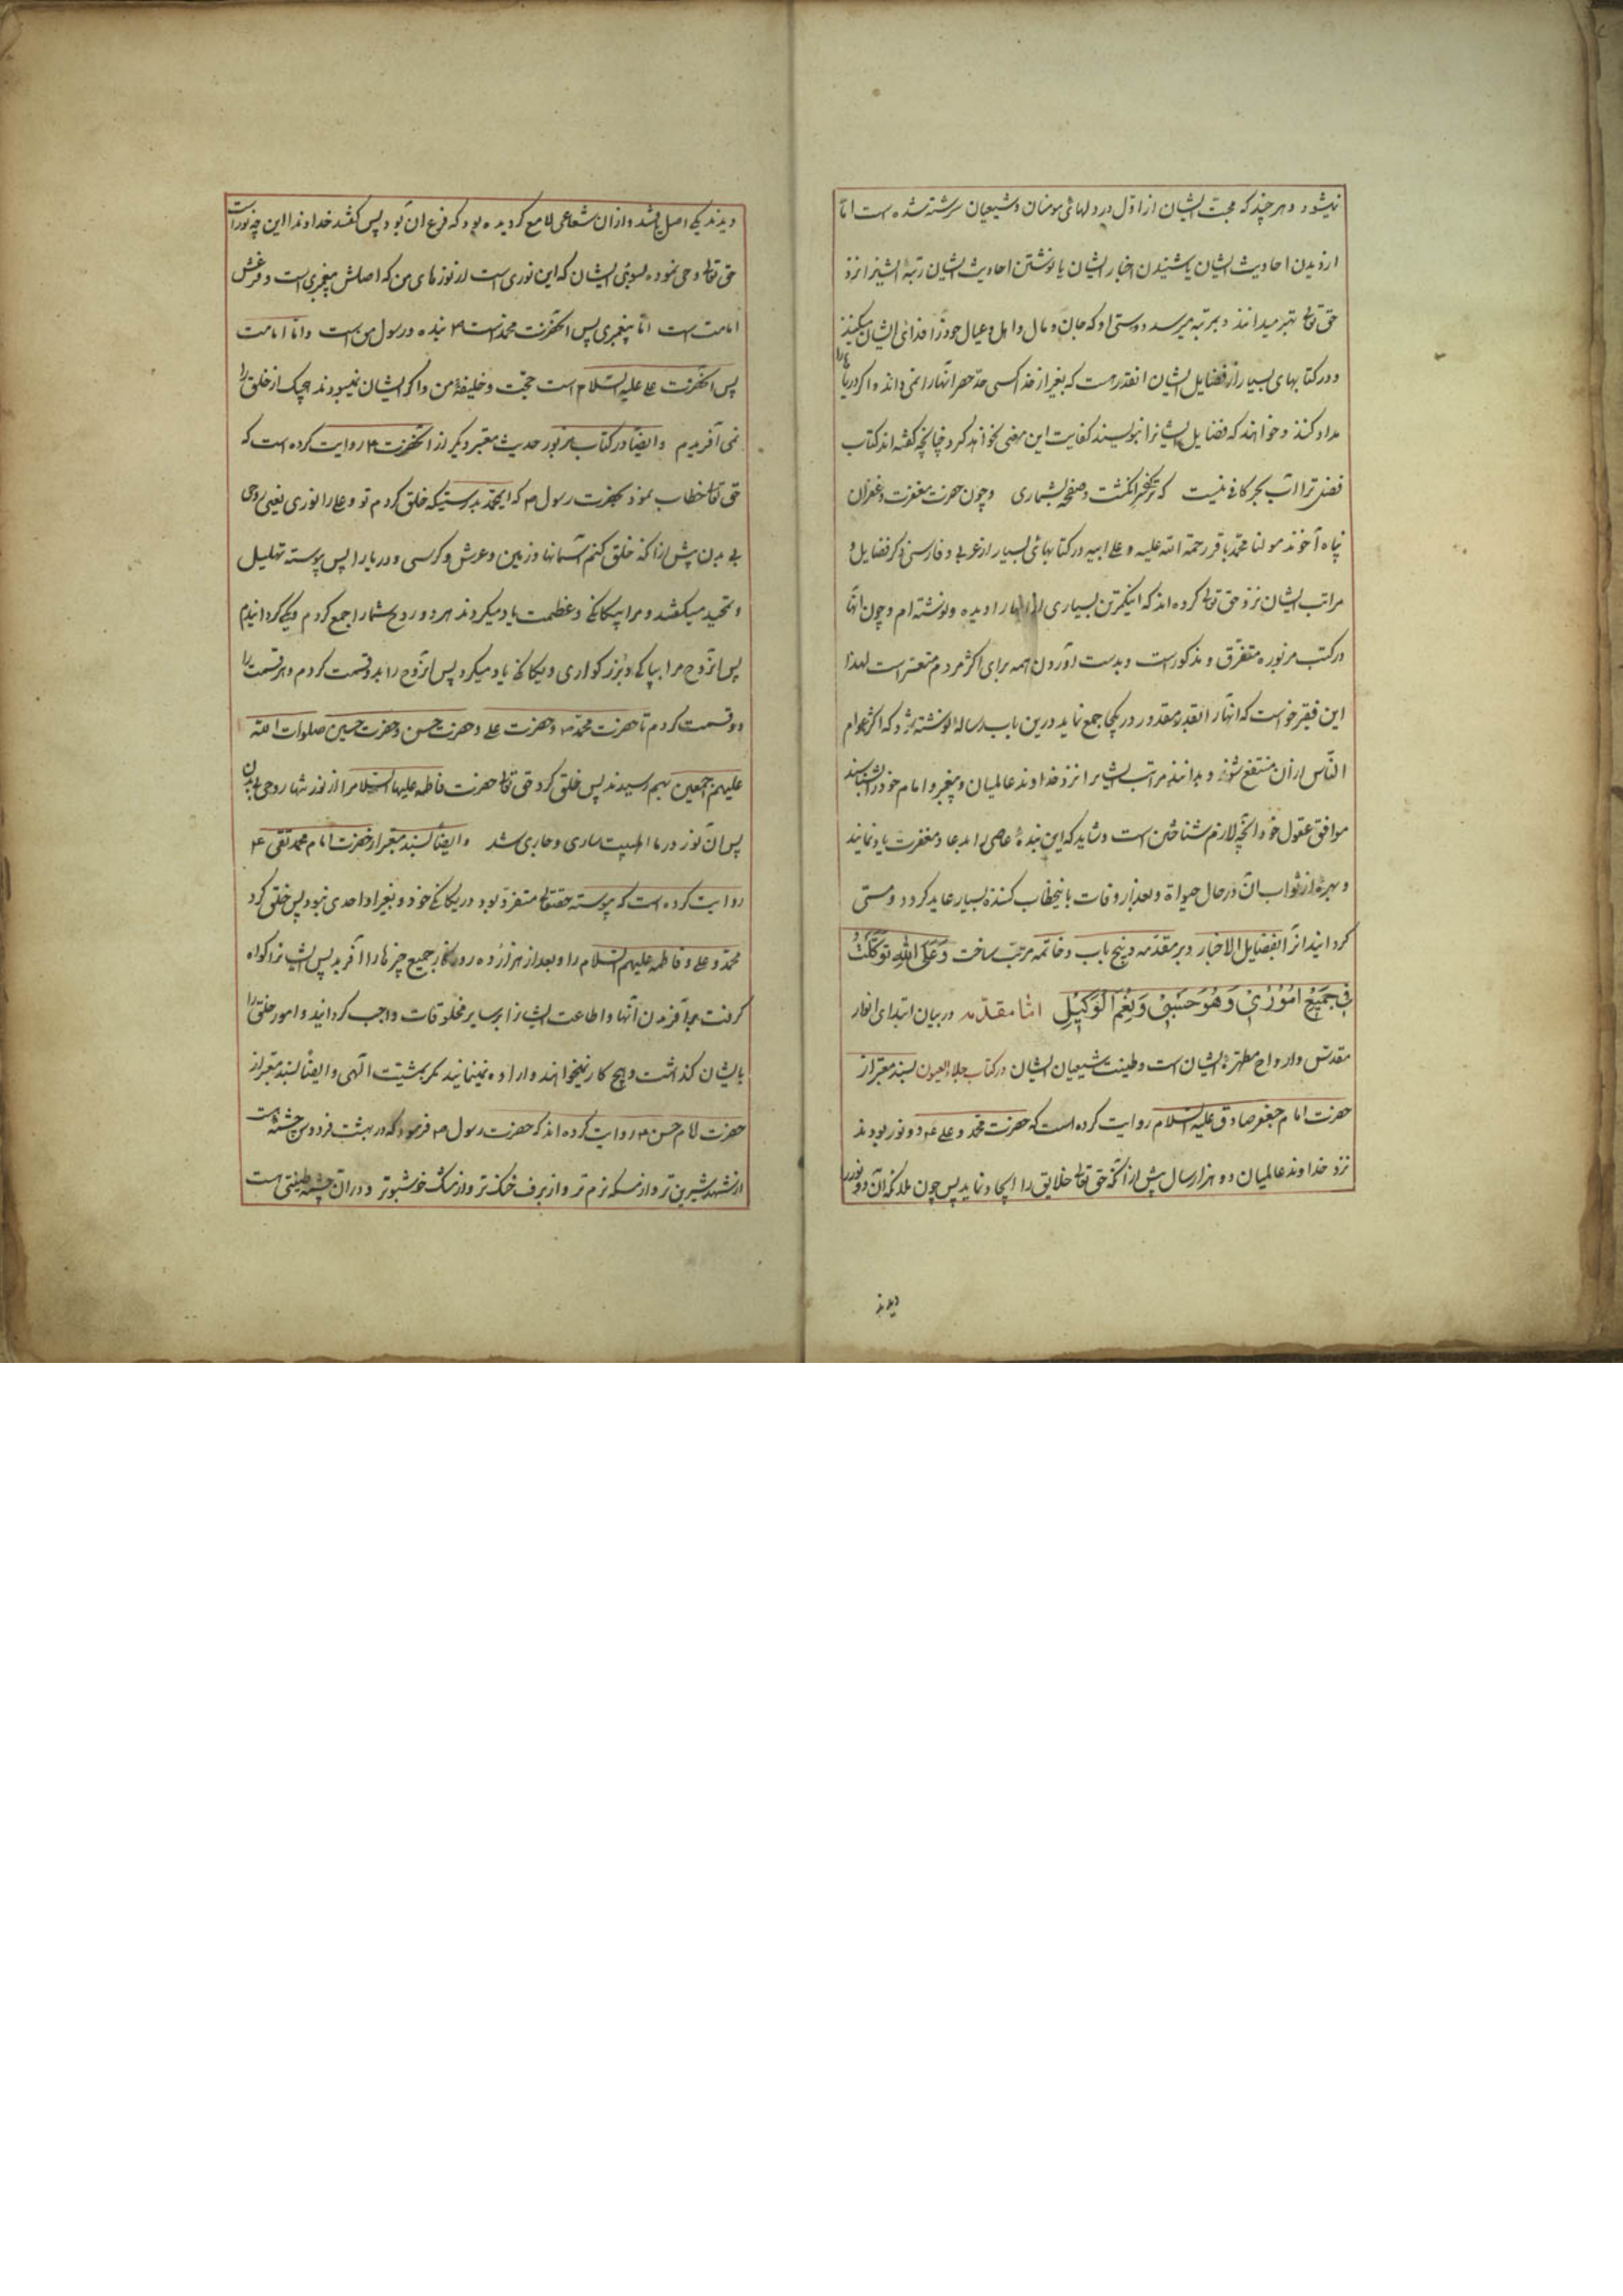 نمیشود و هر چند که محبّت ایشان از اوّل در دلهای مومنان و شیعیان سرشته شده است امّا
از دیدن احادیث ایشان یا شنیدن اخبار ایشان یا نوشتن احادیث ایشان رتبهٔ ایشانرا نزد
حق تعالی بهتر میدانند و بمرتبه میرسد دوستی او که جان و مال و اهل و عیال خود را فدای ایشان میکنند
و در کتابهای بسیار از فضایل ایشان انقدر هست که بغیر از خدا کسی حدّ حصر آنها را نمی داند و اگر دریا را
مداد کنند و خواهند که فضایل ایشانرا بنویسند کفایت این معنی نخواهد کرد چنانچه گفته اند کتاب
فضل ترا آب بحر کافی نیست که تر کنم سر انگشت و صفحه بشماری و چون حضرت مغفرت و غفران
پناه آخوند مولنا محمّد باقر رحمة الله علیه و علی ابیه در کتابهای بسیار از عربی و فارسی ذکر فضایل و
مراتب ایشان نزد حق تعالی کرده اند که اینکمترین بسیاری از انها را دیده و نوشته ام و چون انها
در کتب مزبوره متفرق و مذکور است و بدست آوردن همه برای اکثر مردم متعسّر است لهذا
این فقیر خواست که انها را انقدر مقدور در یکجا جمع نماید درین باب رساله نوشته شود که اکثر عوام
النّاس از ان منتفع شوند و بدانند مراتب ایشانرا نزد خداوند عالمیان و پیغمبر و امام خود را بشناسند
موافق عقول خود آنچه لازم شناختن است و شاید که این بندهٔ عاصی را بدعا و مغفرت یاد نمایند
و بهرهٔ از ثواب آن در حال حیوة و بعد از وفات باینخطاب کنندهٔ بسیار عاید گردد و مسمّی
گردانید انرا بفضایل الاخبار و بر مقدّمه و پنج باب و خاتمه مرتّب ساخت وَعَلَى اللهِ تَوَكَّلْتُ
فِي جَمِيْعِ اُمُوْرِيْ وَهُوَ حَسْبِيْ وَنِعْمَ الْوَكِيْلِ امّا مقدّمه در بیان ابتدای انوار
مقدّس و ارواح مطهّرهٔ ایشان است و طینت شیعیان ایشان در کتاب جلاء العیون بسند معتبر از
حضرت امام جعفر صادق علیه السّلام روایت کرده است که حضرت محمّد و علی ع دو نور بودند
نزد خداوند عالمیان دو هزار سال پیش از آنکه حق تعالی خلایق را ایجاد نماید پس چون ملائکه آن دو نور را
دیدند
دیدند یکی اصل باشد و از ان شعاعی لامع گردیده بود که فرع ان بود پس گفتند خداوندا این چه نور است
حق تعالی وحی نمود بسوی ایشان که این نوری است از نورهای من که اصلش پیغمبری است و فرعش
امامت است امّا پیغمبری پس انحضرت محمّد است ص بنده و رسول من است و امّا امامت
پس انحضرت علی علیه السّلام است حجّت و خلیفهٔ من و اگر ایشان نمیبودند هیچیک از خلق را
نمی آفریدم و ایضاً در کتاب مزبور حدیث معتبر دیگر از انحضرت ع روایت کرده است که
حق تعالی خطاب نمود بحضرت رسول ص که ایمحمّد بدرستیکه خلق کردم تو و علی را نوری یعنی روحی
بی بدن پیش از انکه خلق کنم آسمانها و زمین و عرش و کرسی و دریا را پس پیوسته تهلیل
و تمجید میگفتند و مرا بیگانکی و عظمت یاد میکردند هر دو روح شما را جمع کردم و یکی گردانیدم
پس انروح مرا بپاکی و بزرگواری و یگانکی یاد میکرد پس انروح را بدو قسمت کردم و هر قسمت را
دو قسمت کردم تا حضرت محمّد ص و حضرت علی و حضرت حسن و حضرت حسین صلوات الله
علیهم اجمعین بهم رسیدند پس خلق کرد حق تعالی حضرت فاطمه علیها السّلام را از نور تنها روحی بی بدن
پس ان نور در ما اهلبیت ساری و جاری شد و ایضاً بسند معتبر از حضرت امام محمد تقی ع
روایت کرده است که پیوسته حقتعالی متفرّد بود در یگانکی خود و بغیر او احدی نبود پس خلق کرد
محمّد و علی و فاطمه علیهم السّلام را و بعد از هزار دهر روزگار جمیع چیزها را آفرید پس ایشانرا گواه
گرفت بر آفریدن آنها و اطاعت ایشانرا بر سایر مخلوقات واجب گردانید و امور خلق را
بایشان گذاشت و هیچ کار نمیخواهند و اراده نمینمایند مگر بمشیّت الٓهی و ایضاً بسند معتبر از
حضرت امام حسن ع روایت کرده اند که حضرت رسول ص فرمود که در بهشت فردوس چشمهٔ هست
از شهد شیرین تر و از مسکه نرم تر و از برف خنک تر و از مشک خوشبوتر و در ان چشمه طینتی هست